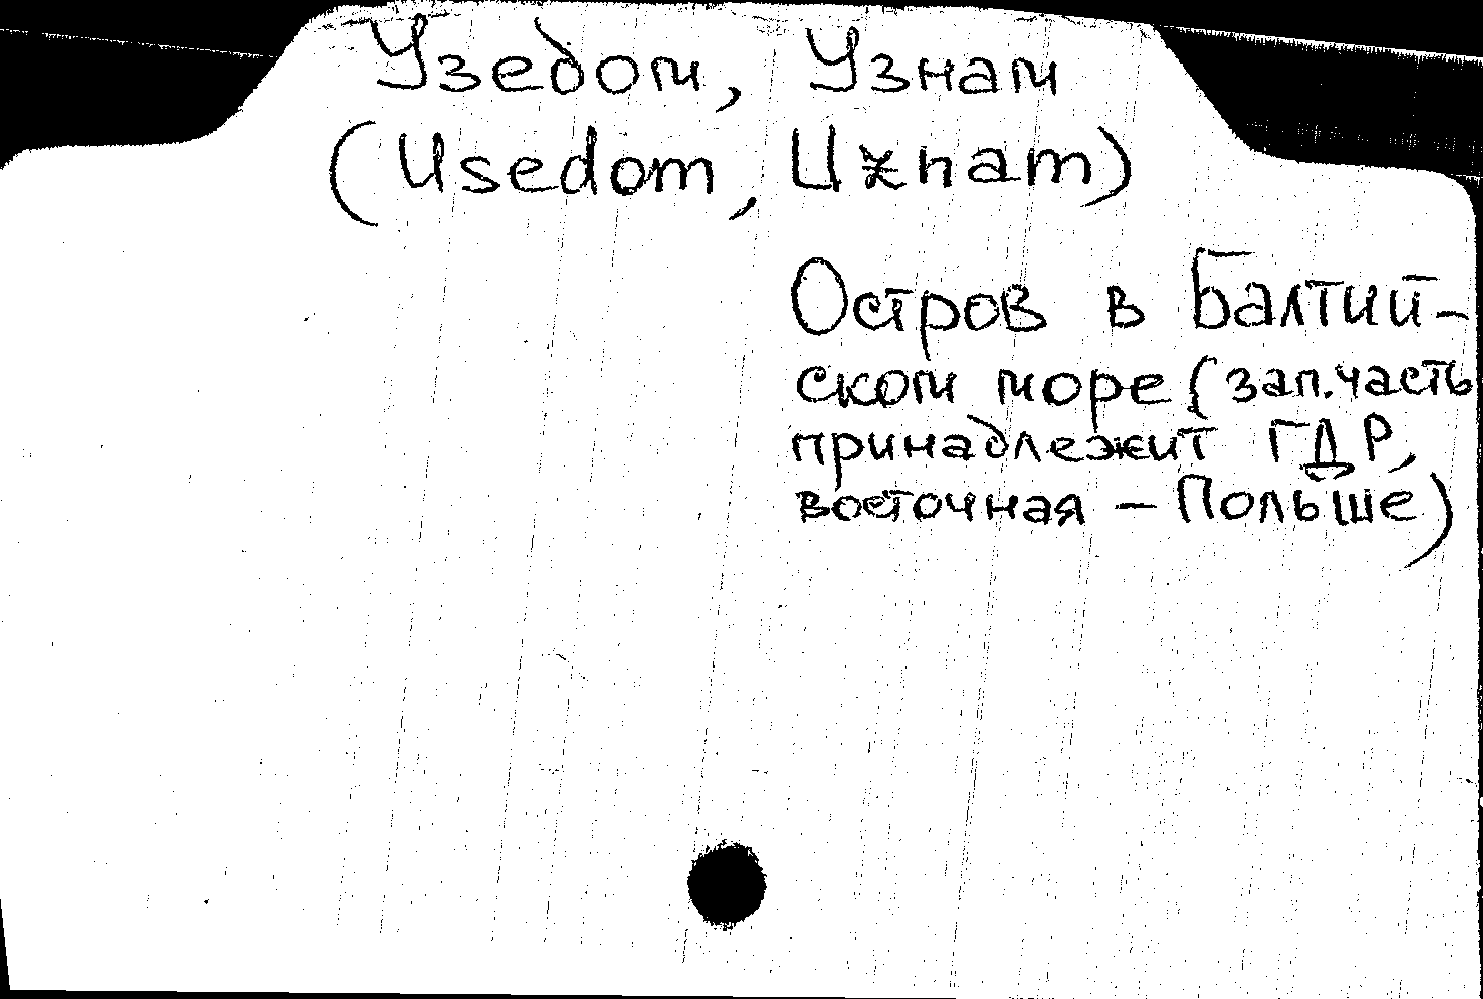 Узедом, Узнам
(Usedom, Uznam)
Остров в Балтий-
ском море (зап. часть
принадлежит ГДР,
восточная – Польше)